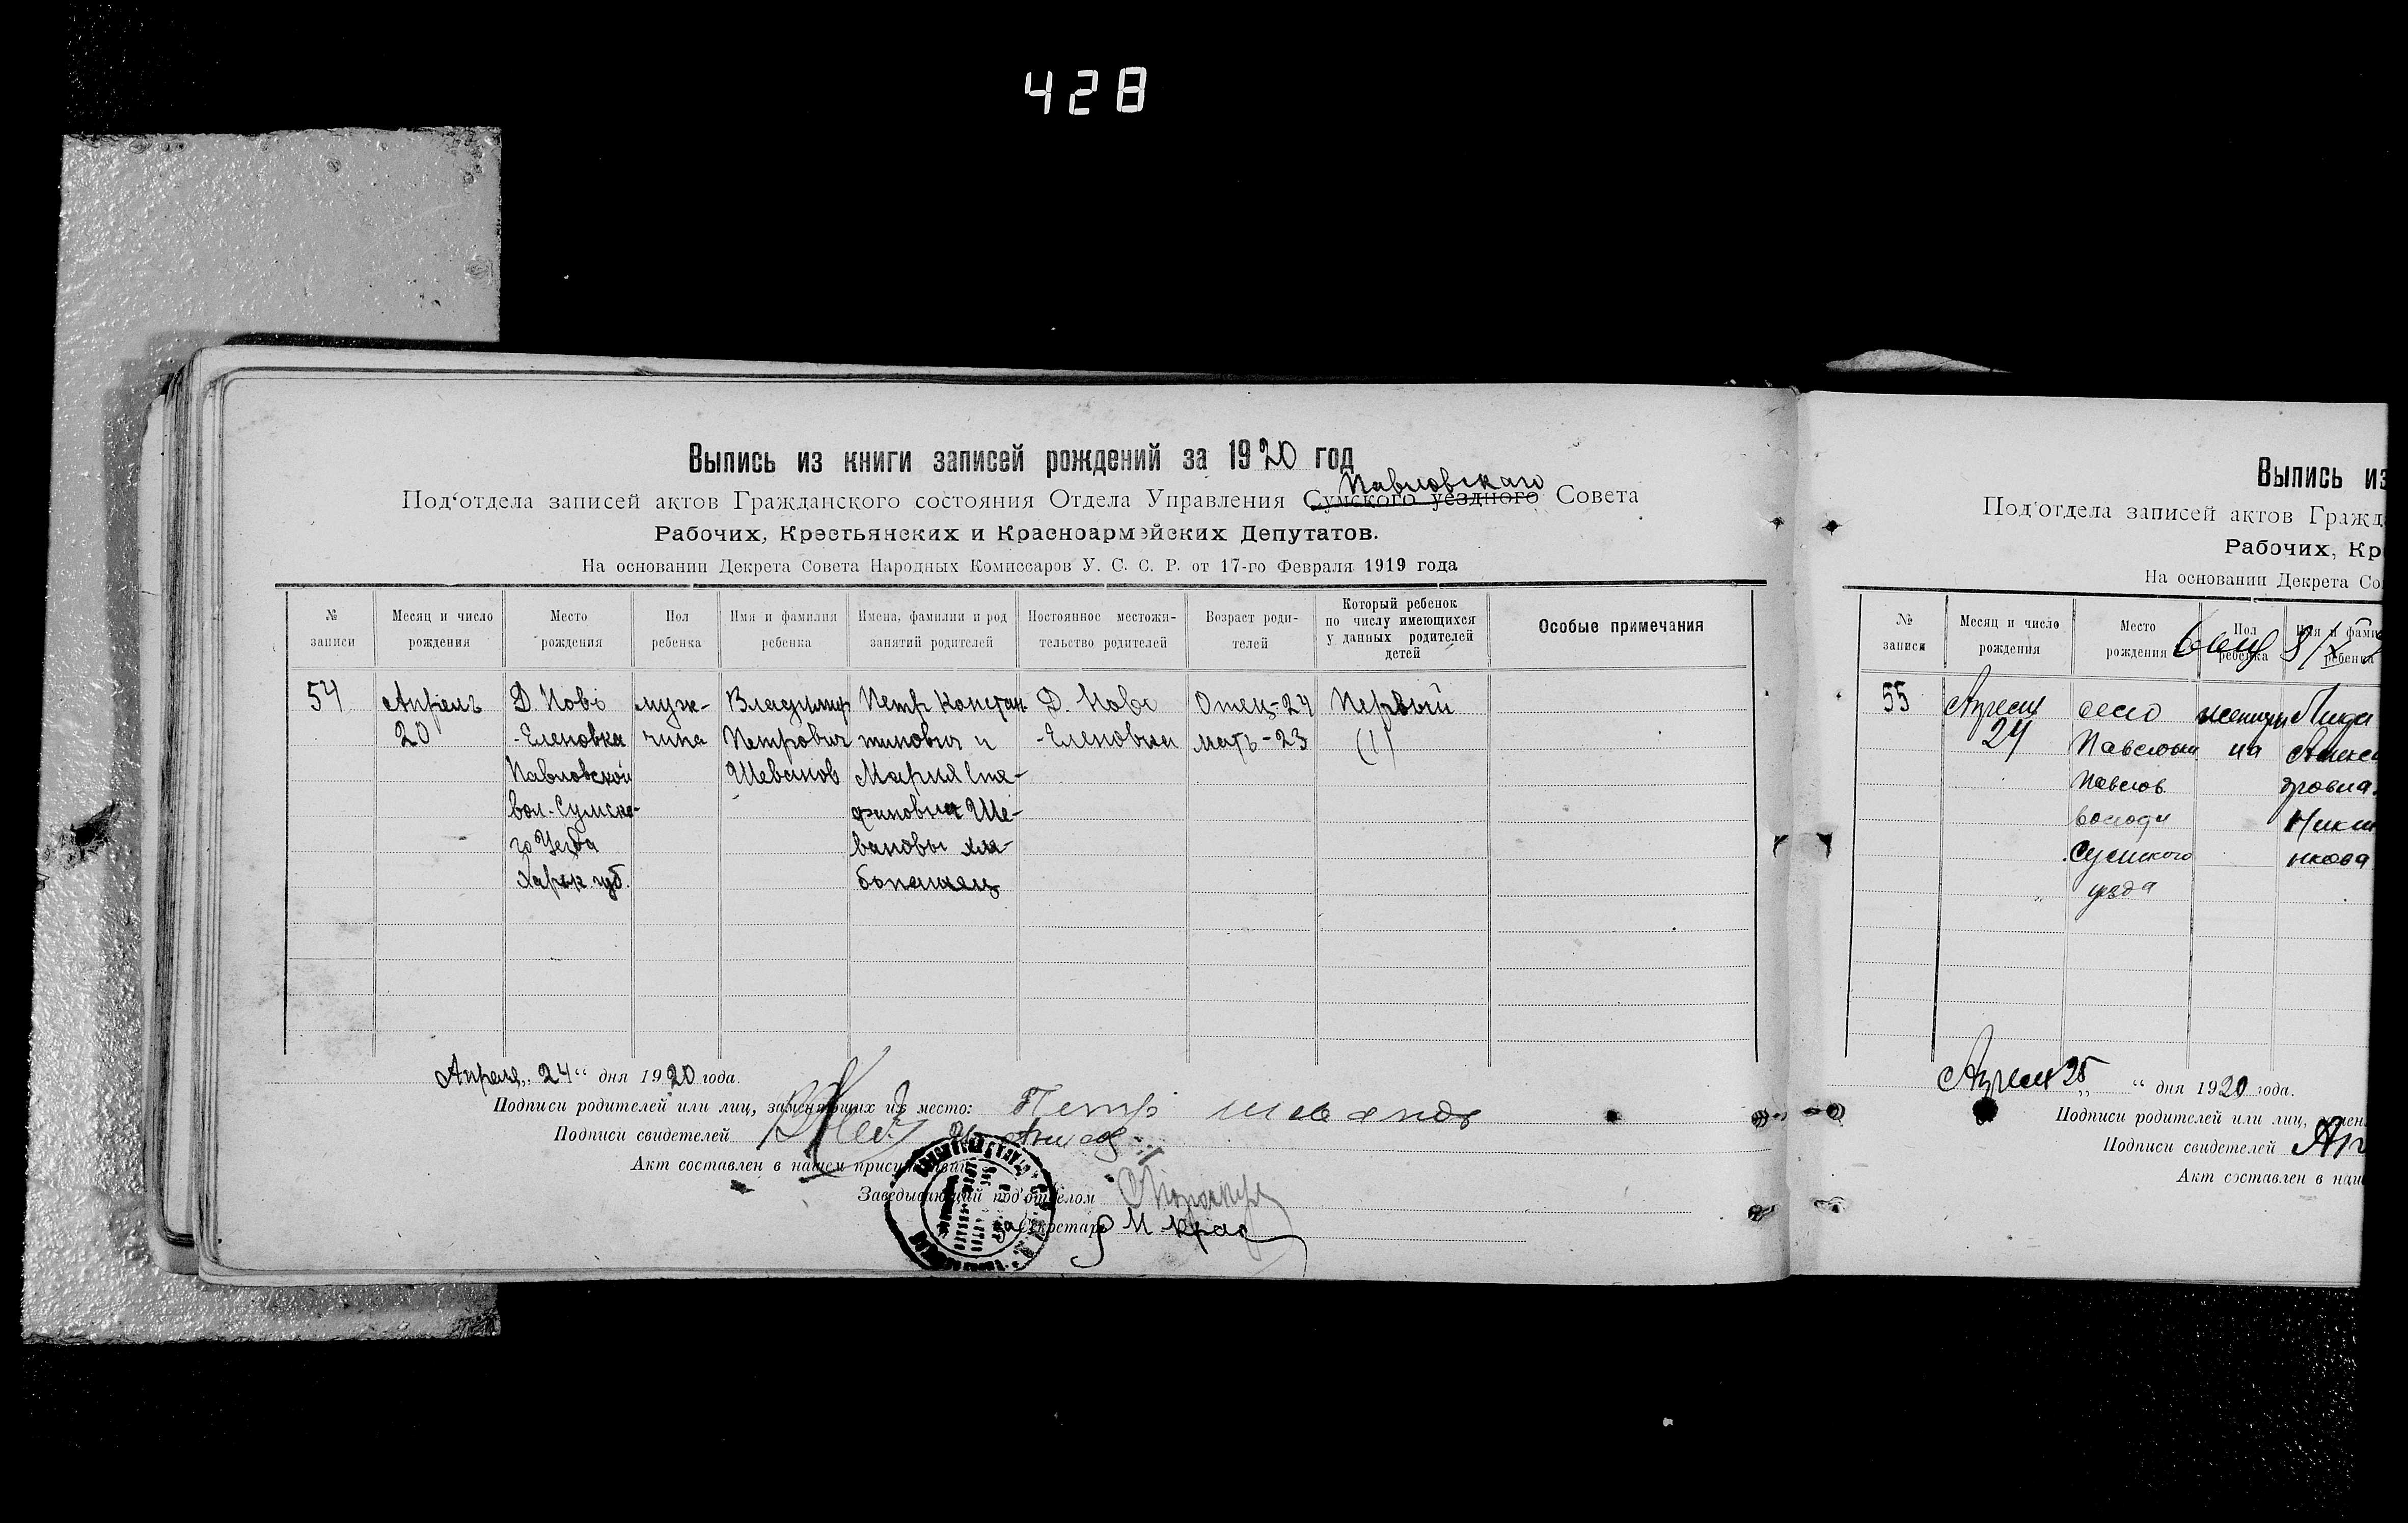 428
Выпись из книги записей рождений за 1920 год
Павловскаго
Под‘отдела записей актов Гражданского состояния Отдела Управления Сумского уездного Совета
Рабочих, Крестьянских и Красноармейских Депутатов.
На основании Декрета Совета Народных Комиссаров У. С. С. Р. от 17-го Февраля 1919 года
№ записи
Месяц и число рождения
Место рождения
Пол ребенка
Имя и фамилия ребенка
Имена, фамилии и род занятий родителей
Постоянное местожи-
тельство родителей
Возраст роди-
телей
Который ребенок
по числу имеющихся
у данных родителей
детей
Особые примечания
54
Апрель
20
Д. Ново
-Еленовка
Павловской
вол. Сумско-
го Уезда
Харьк. губ.
муж-
чина
Владимир
Петрович
Шеванов
Петр Констан
тинович и
Мария
Ше-
вановы хле-
бопашец
Д. Ново
-Еленовка
Отец-24
мать-23
Первый
(1)
Апреля „24“ дня 1920 года.
Подписи родителей или лиц, заменяющих их место: Петр
Подписи свидетелей
Акт составлен в нашем присутствии
Заведывающий под‘отделом
Секретарь
Выпись из
Под‘отдела записей актов Гражд
Рабочих, Кр
На основании Декрета Со
№ записи
Месяц и число рождения
Место рождения
Пол ребенка
Имя и фами
ребенка
55
24
село
Павловки
Павлов.
волости
Сумского
уезда
женщи
на
Алекса
Ники
25 “ дня 1920 года.
Подписи родителей или лиц,
Подписи свидетелей
Акт составлен в наш